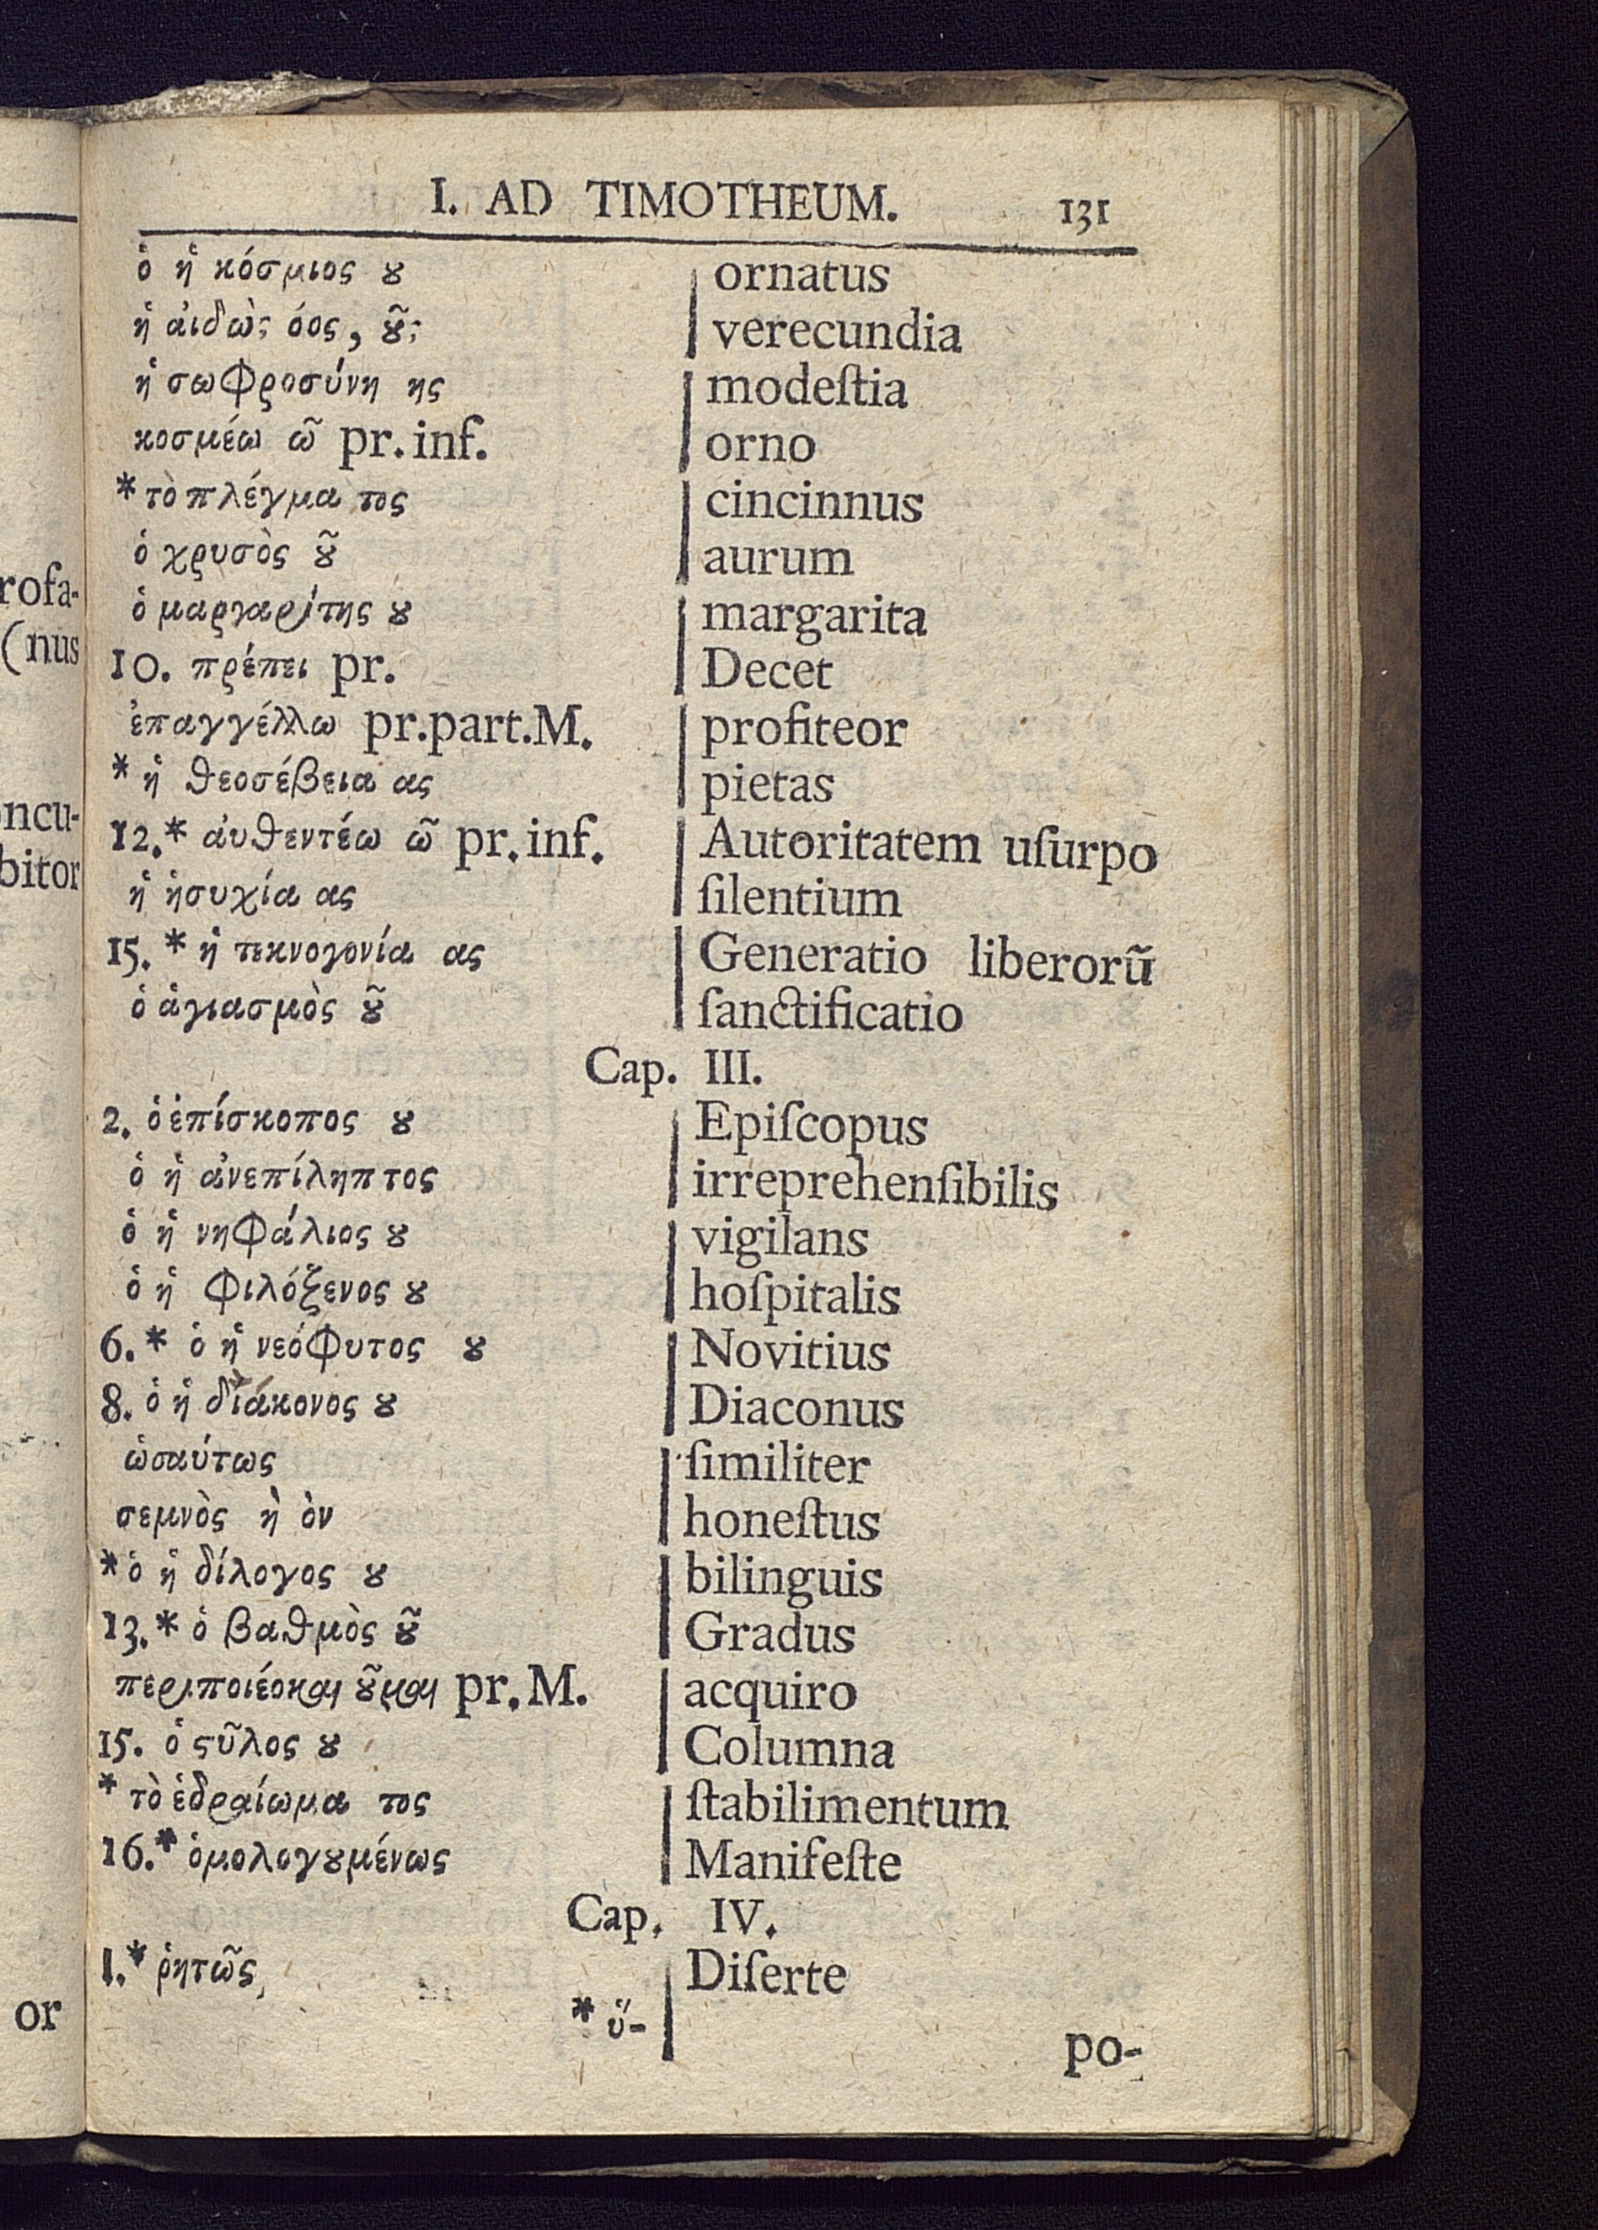 I. AD TIMOTHEUM. 131
ὁ ἡ κόσμιος ȣ | ornatus
ἡ αἰδὼς όος, ȣ͂ς | verecundia
ἡ σωφροσύνη ης | modeſtia
κοσμέω ῶ pr. inf. | orno
* τὸ πλέγμα τος | cincinnus
ὁ χρυσὸς ȣ͂ | aurum
ὁ μαργαρίτης ȣ | margarita
10. πρέπει pr. | Decet
ἐπαγγέλλω pr. part. M. | profiteor
* ἡ θεοσέβεια ας | pietas
12.* ἀυθεντέω ῶ pr. inf. | Autoritatem uſurpo
ἡ ἡσυχία ας | ſilentium
15. * ἡ τεκνογονία ας | Generatio liberorũ
ὁ ἁγιασμὸς ȣ͂ | ſanctificatio
Cap. III.
2. ὁ ἐπίσκοπος ȣ | Epiſcopus
ὁ ἡ ἀνεπίληπτος | irreprehenſibilis
ὁ ἡ νηφάλιος ȣ | vigilans
ὁ ἡ φιλόξενος ȣ | hoſpitalis
6. * ὁ ἡ νεόφυτος ȣ | Novitius
8. ὁ ἡ διάκονος ȣ | Diaconus
ὡσαύτως | ſimiliter
σεμνὸς ὴ ὸν | honeſtus
* ὁ ἡ δίλογος ȣ | bilinguis
13. * ὁ βαθμὸς ȣ͂ | Gradus
περιποιέομαι ȣ͂μαι pr. M. | acquiro
15. ὁ ϛῦλος ȣ | Columna
* τὸ ἑδραίωμα τος | ſtabilimentum
16.* ὁμολογȣμένως | Manifeſte
Cap. IV.
1.* ῥητῶς, | Diſerte
* ὕ-
po-
rofa-
(nus
oncu-
bitor
or